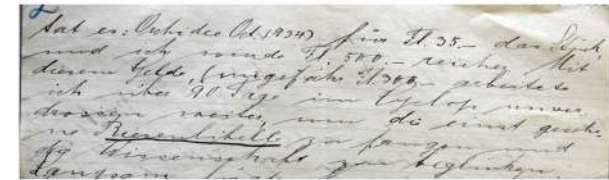 tat es: Orchidee Oct. 1934) für Fl. 35.- das Stück
und ich wurde Fl. 500.- reicher. Mit
diesem Gelde, (ungefähr Fl. 300.- arbeitete
ich über 90 Tage im Cyclop unver-
drossen weiter, um die einst gesehe-
ne Riesenlibelle zu fangen und
die Wissenschaft zu beglücken.
Langsam